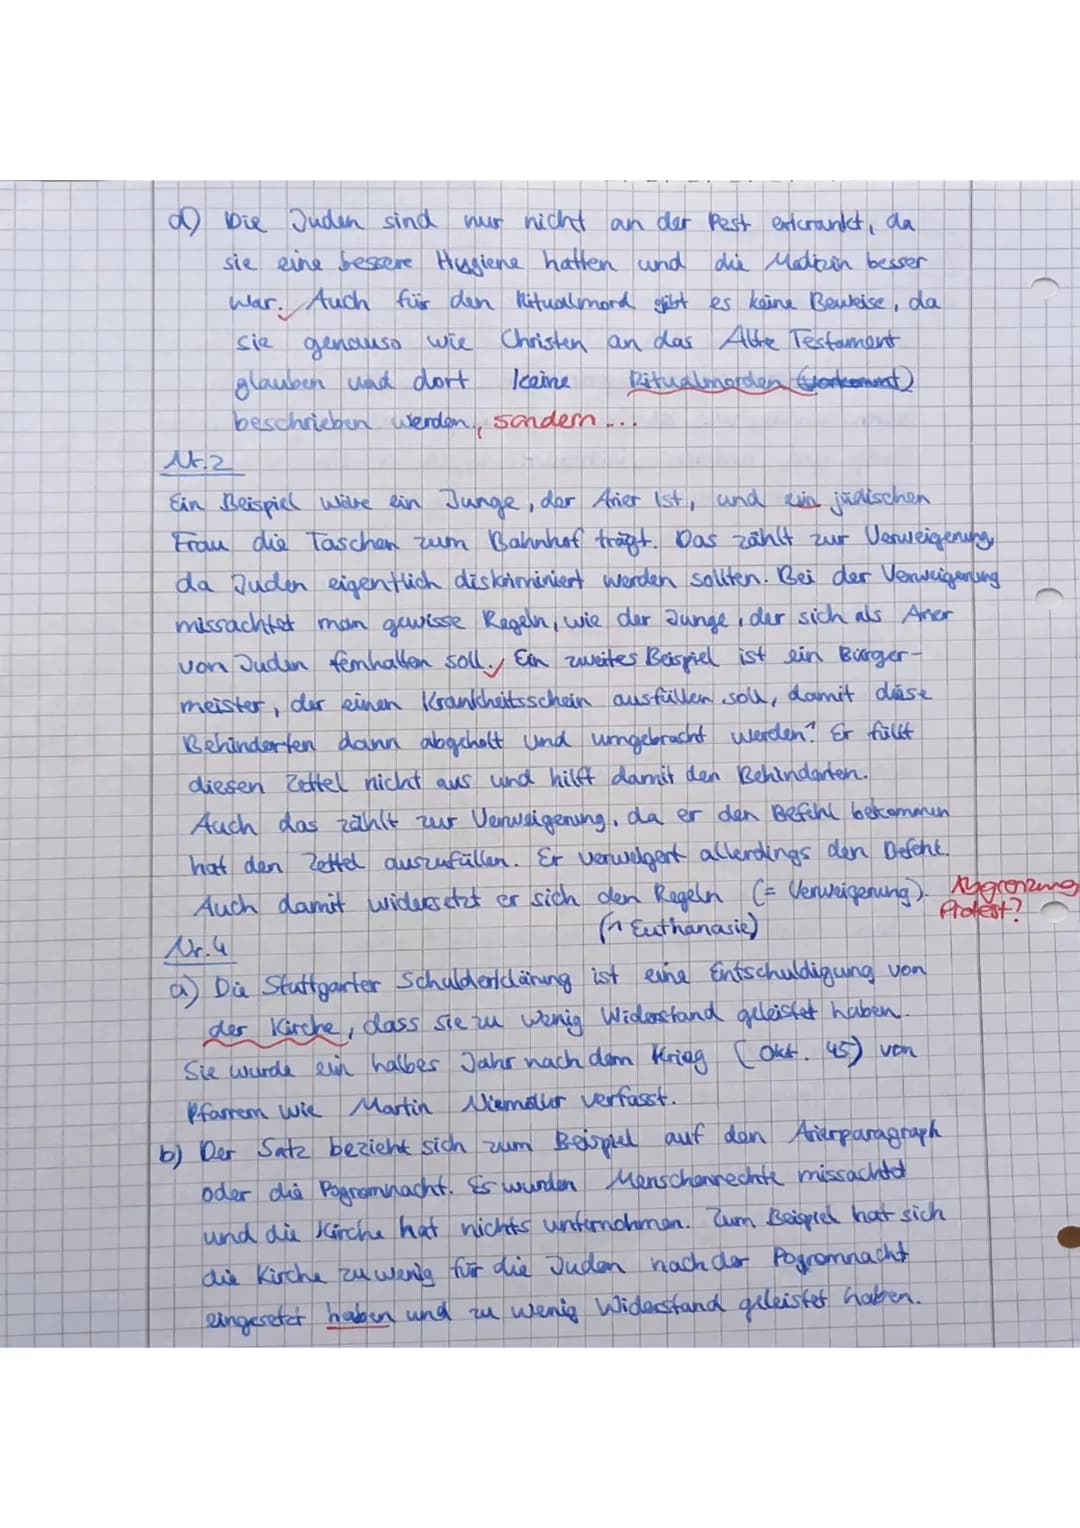 d) Die Juden sind nur nicht an der Pest erkrankt, da
sie eine bessere Hygiene hatten und die Medizin besser
war. Auch für den Ritualmord gibt es keine Beweise, da
sie genauso wie Christen an das Alte Testament
glauben und dort keine Ritualmorden (vorkommt)
beschrieben werden., sondern ...
Nr.2
Ein Beispiel wäre ein Junge, der Arier ist, und ein jüdischen
Frau die Taschen zum Bahnhof trägt. Das zählt zur Verweigerung,
da Juden eigentlich diskriminiert werden sollten. Bei der Verweigerung
missachtet man gewisse Regeln, wie der Junge, der sich als Arier
von Juden fernhalten soll. Ein zweites Beispiel ist ein Bürger-
meister, der einen Krankheitsschein ausfüllen soll, damit diese
Behinderten dann abgeholt und umgebracht werden.¹ Er füllt
diesen Zettel nicht aus und hilft damit den Behinderten.
Auch das zählt zur Verweigerung, da er den Befehl bekommen
hat den Zettel auszufüllen. Er verweigert allerdings den Befehl.
Auch damit widersetzt er sich den Regeln (= Verweigerung). Abgrenzung
Protest?
(¹ Euthanasie)
Nr.4
a) Die Stuttgarter Schulderklärung ist eine Entschuldigung von
der Kirche, dass sie zu wenig Widerstand geleistet haben.
Sie wurde ein halbes Jahr nach dem Krieg (Okt. 45) von
Pfarrern wie Martin Niemöller verfasst.
b) Der Satz bezieht sich zum Beispiel auf den Arierparagraph
oder die Pogromnacht. Es wurden Menschenrechte missachtet
und die Kirche hat nichts unternohmen. Zum Beispiel hat sich
die Kirche zu wenig für die Juden nach der Pogromnacht
eingesetzt haben und zu wenig Widerstand geleistet haben.